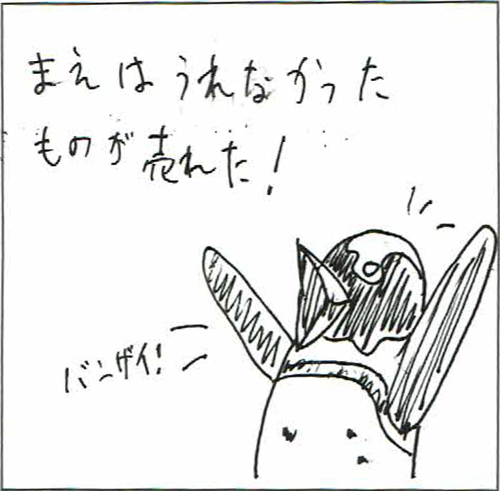 まえはうれなかった
ものが売れた!
バンザイ!